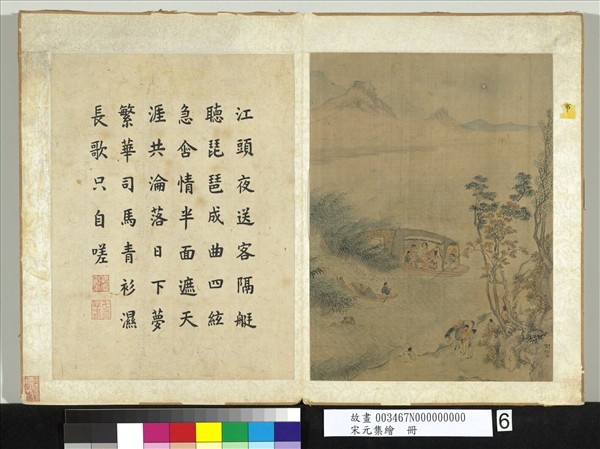 江頭夜送客隔艇
聽琵琶成曲四絃
急含情半面遮天
涯共淪落日下夢
繁華司馬青衫濕
長歌只自嗟
故畫 003467N000000000
宋元集繪 冊
6